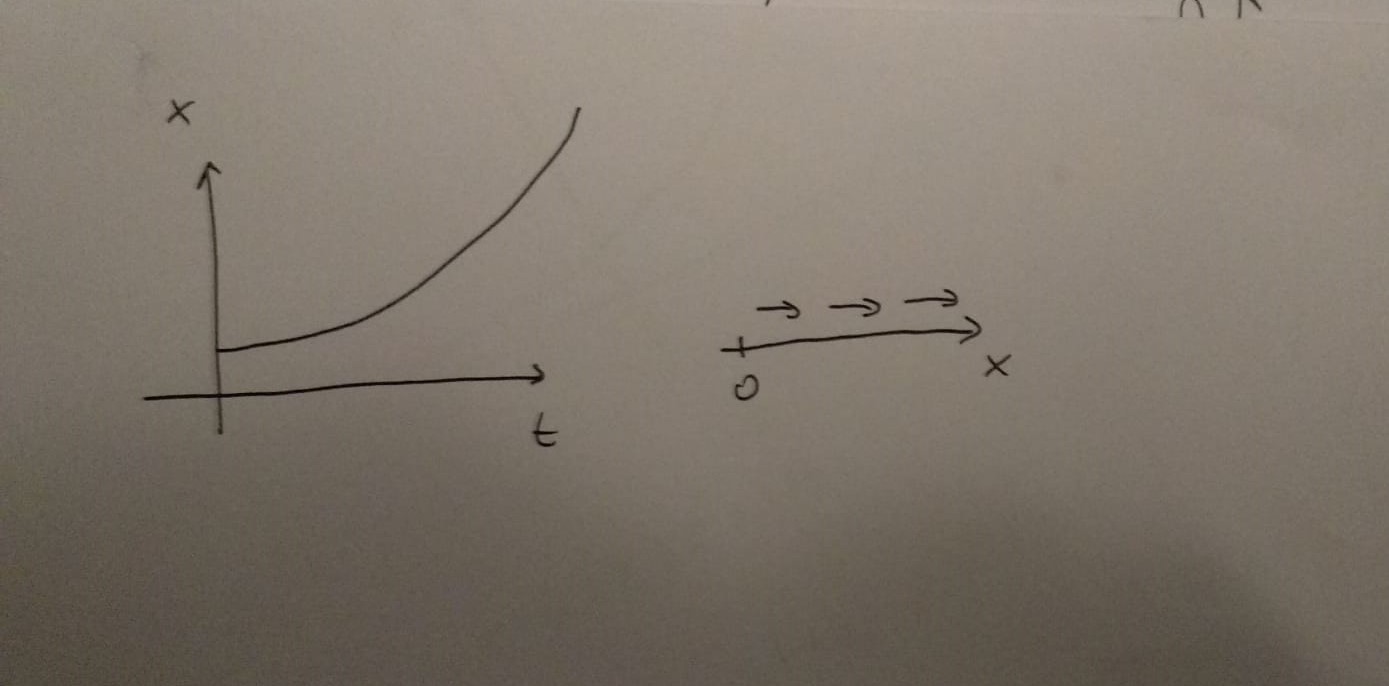 x
t
0
x